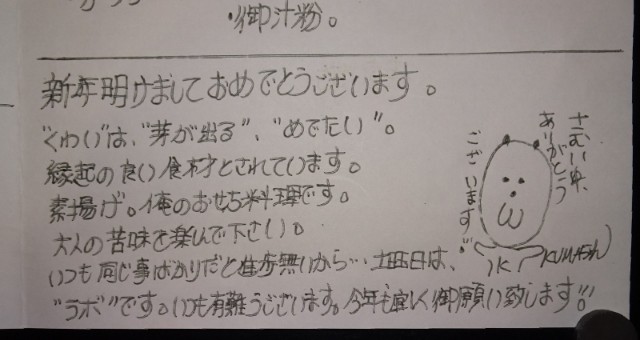 ・御汁粉。
新年明けましておめでとうございます。
"くわい"は、"芽が出る"、"めでたい"。
縁起の良い食材とされています。
素揚げ。俺のおせち料理です。
大人の苦味を楽しんで下さい。
いつも同じ事ばかりだと進歩無いから…土曜日は、
"ラボ"です。いつも有難うございます。今年も宜しく御願い致します!!
さむい中、
ありがとう
ございます!